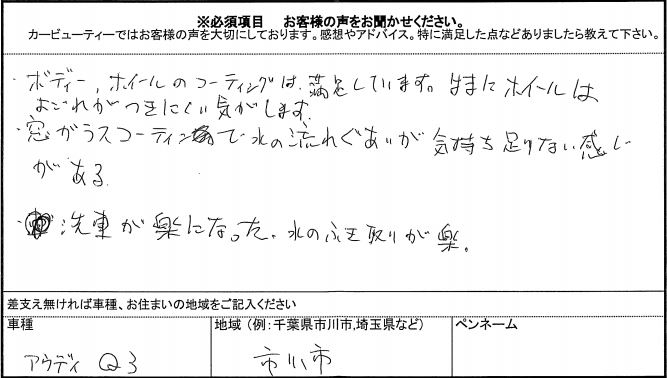 ※必須項目　お客様の声をお聞かせください。
カービューティーではお客様の声を大切にしております。感想やアドバイス。特に満足した点などありましたら教えて下さい。
・ボディー，ホイールのコーティングは、満足しています。特にホイールは
よごれがつきにくい気がします。
・窓ガラスコーティングで水の流れぐあいが気持ち足りない感じ
がある
・洗車が楽になった。水のふき取りが楽。
差支え無ければ車種、お住まいの地域をご記入ください
車種
地域（例：千葉県市川市,埼玉県など）
ペンネーム
アウディ Q3
市川市